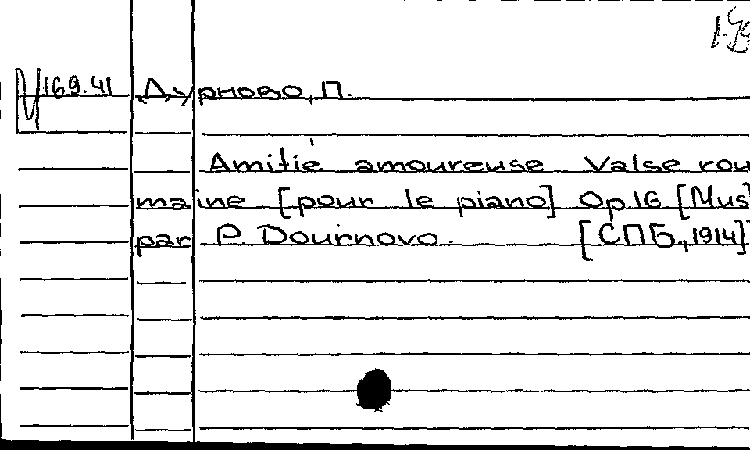 169.41 Дурново, П.
Amitié amoureuse Valse rou
maine [pour le piano] Op.16 [Mus]
par P. Dournovo. [СПБ., 1914]